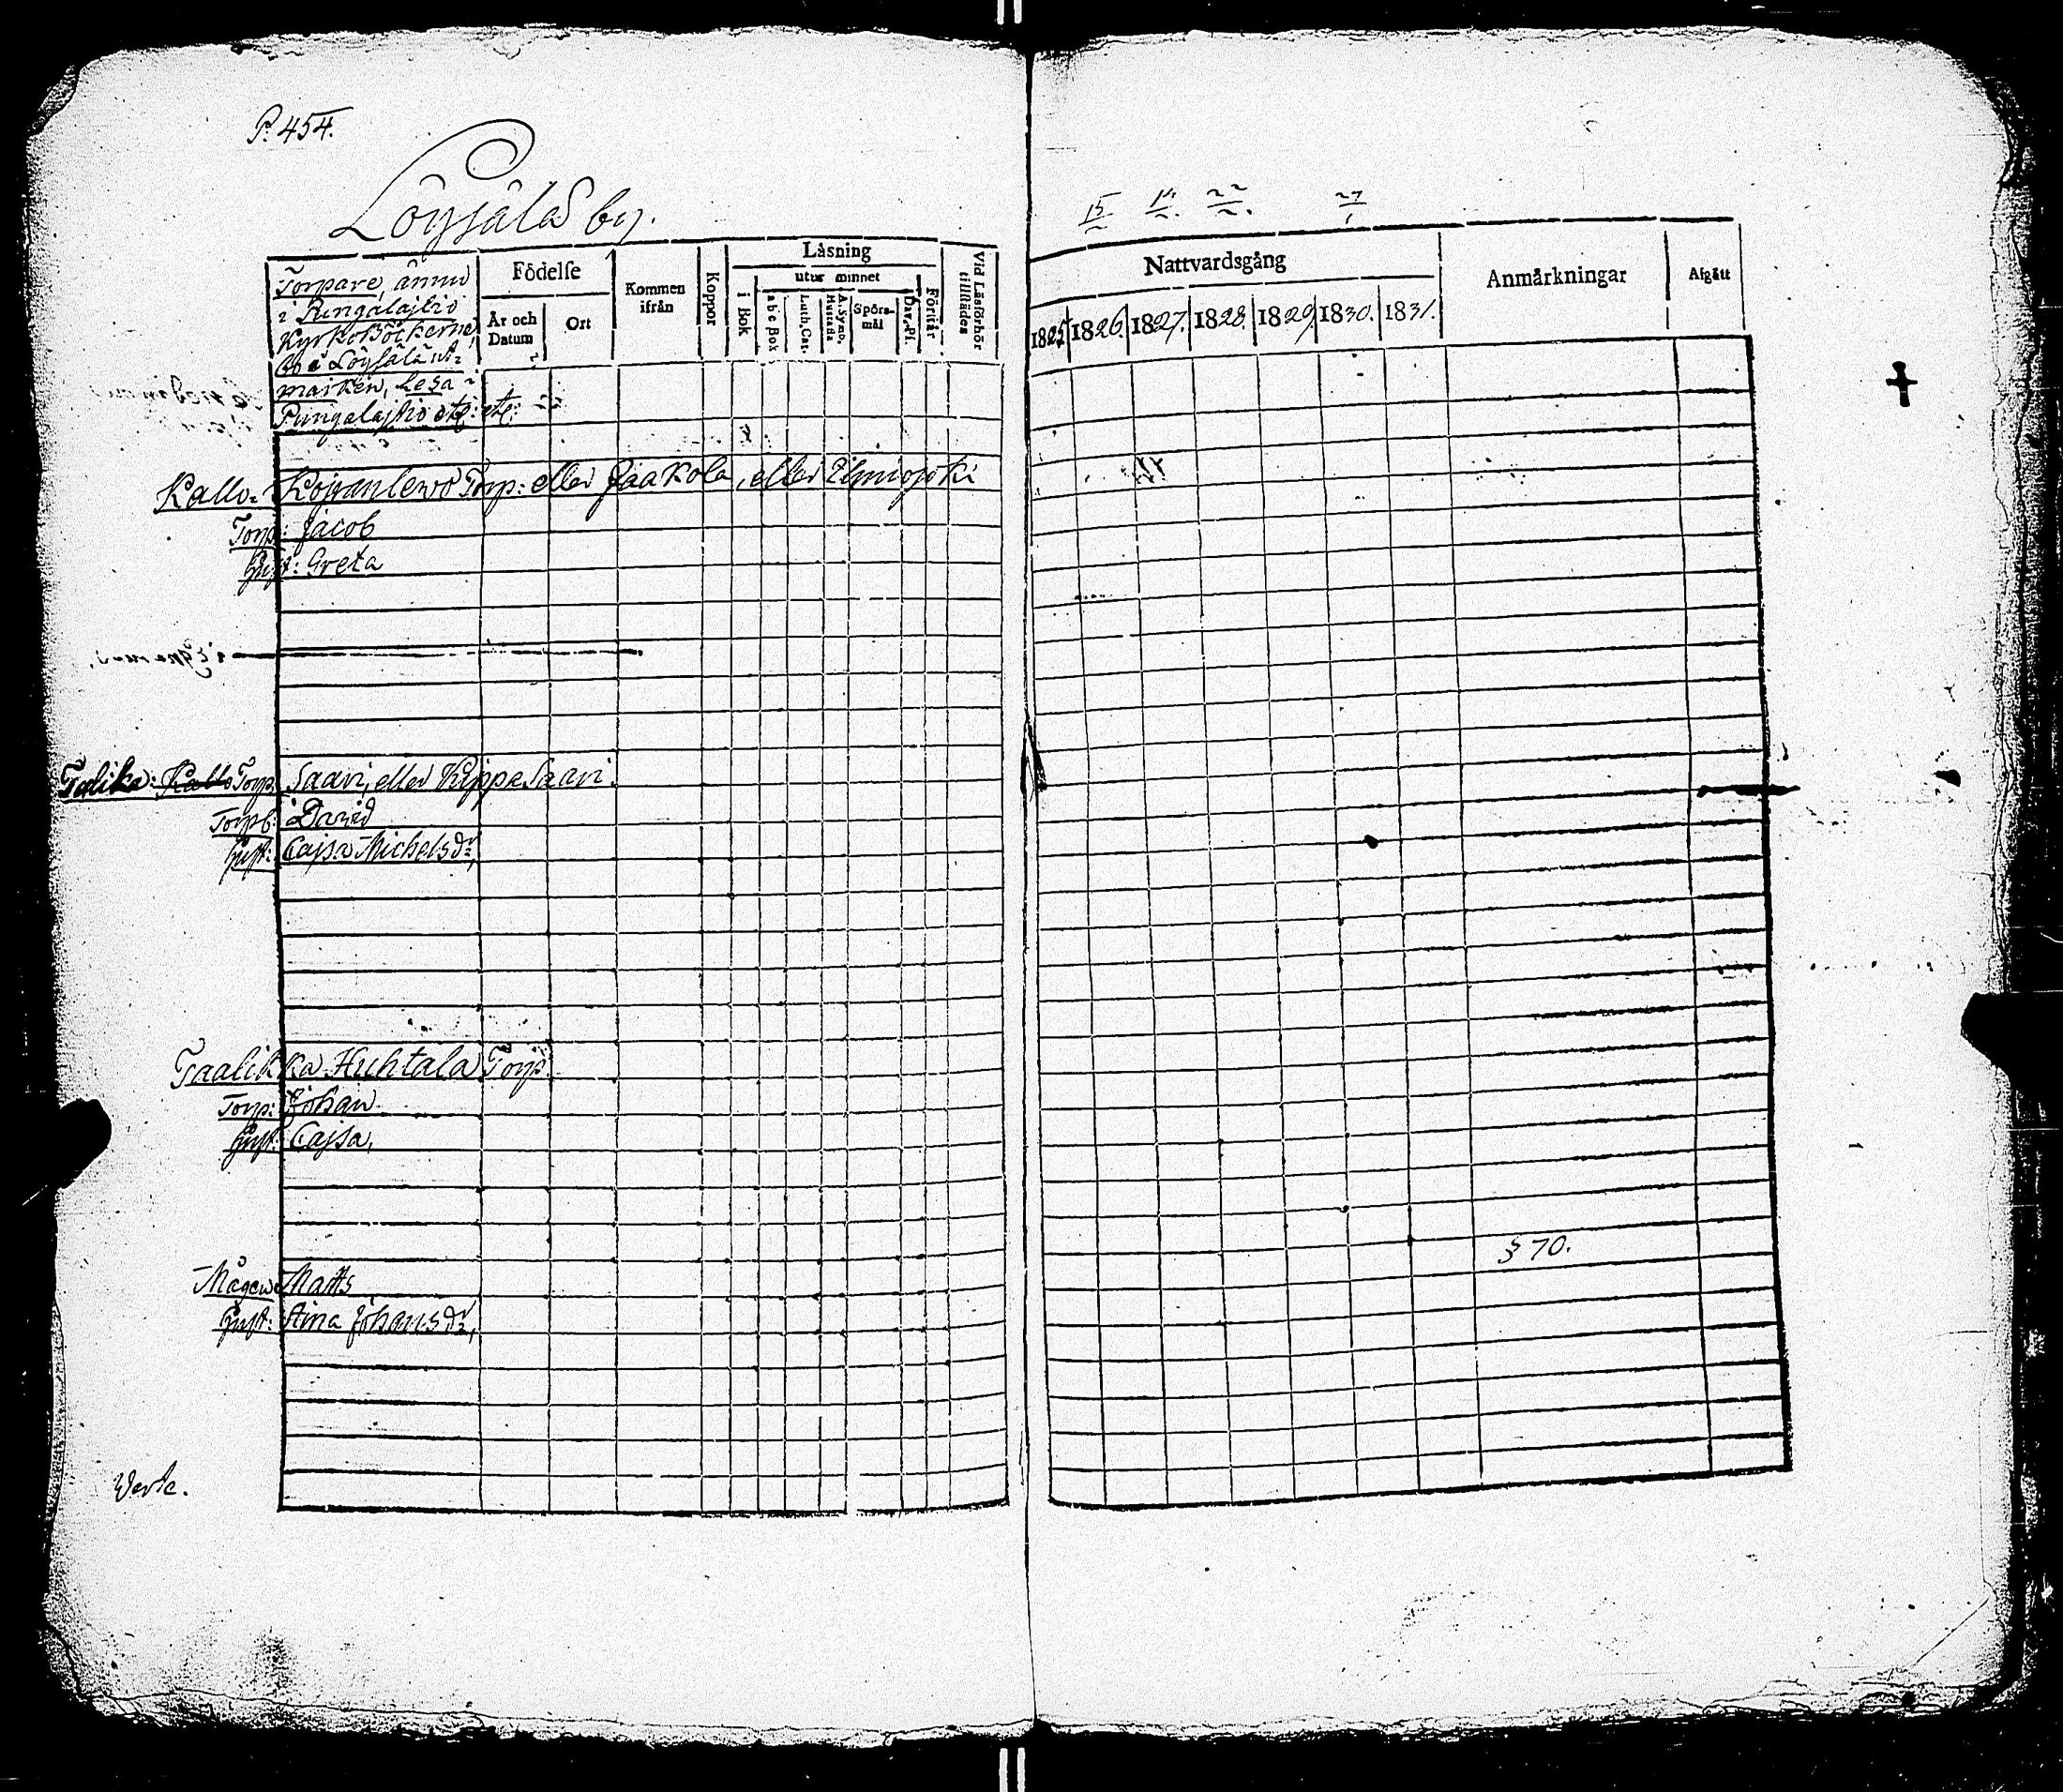 P. 454.
Löysälä by.
Torpare, ännu
i Pungalajtio
KyrkoBöckerne,
Löysälä
marken, Lesa i
Pungalajtio etc: etc:
Födelse
År och Datum
Ort
Kommen ifrån
Koppor
Läsning
utur minnet
i Bok
abc Bok
Luth. Cat.
A. Symb. Hustafla
Spörs-mål
Dav. Ps.
Förstår
Vid Läsförhör tillstädes
Kallo- Torp: eller Jaakola, eller
Torp: Jacob
Hust: Greta
Talika: Kallo Torp. Saari, eller KippaSaari.
Torpf: David
Hust: Cajsa Michelsdr,
Taalikka Huhtala Torp.
Torp: Johan
Hust: Cajsa,
Mågen Matts
Hust: Stina Johansdr,
Vert.
15 22 27
Nattvardsgång
1825 1826. 1827. 1828. 1829. 1830. 1831.
Anmärkningar
Afgått
§ 70.